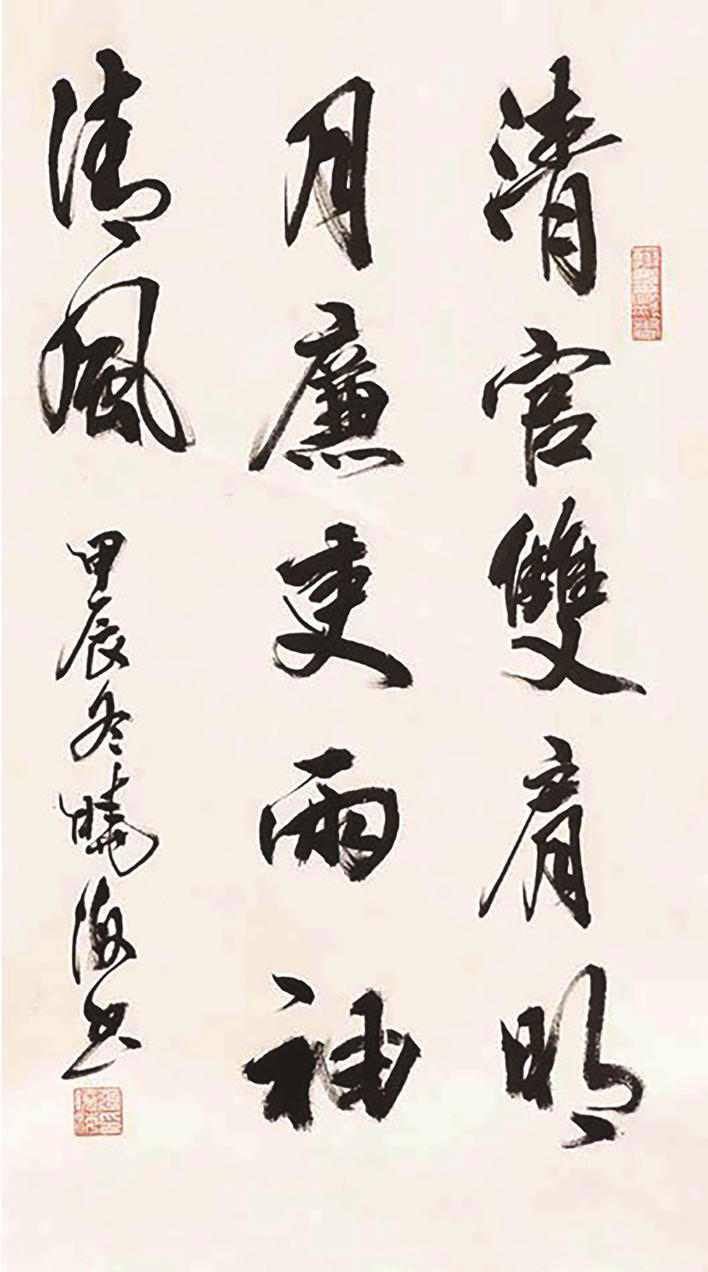 清官雙肩明
月廉吏兩袖
清風
甲辰冬曉海書